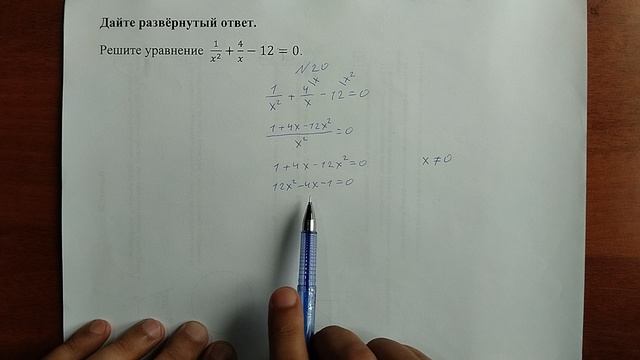 Дайте развёрнутый ответ.
Решите уравнение 1/x² + 4/x − 12 = 0.
N20
1/x² + 4/x \x − 12 \x² = 0
(1+4x−12x²)/x² = 0
1+4x−12x²=0 x≠0
12x²−4x−1=0